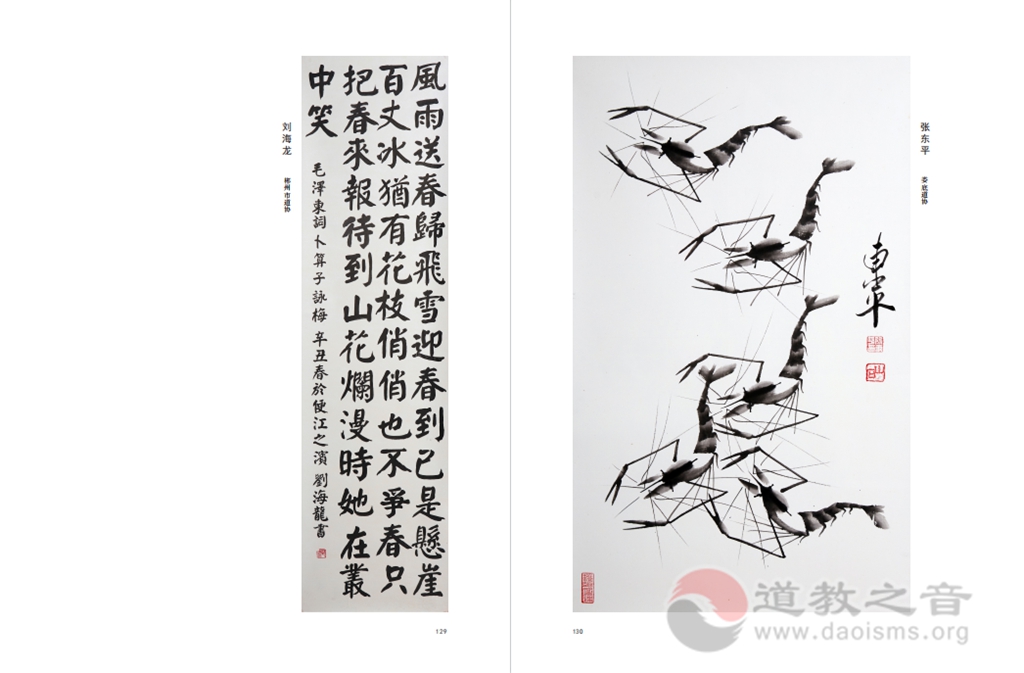 刘海龙
郴州市道协
風雨送春歸飛雪迎春到已是懸崖
百丈冰猶有花枝俏俏也不爭春只
把春來報待到山花爛漫時她在叢
中笑
毛澤東詞卜算子詠梅 辛丑春於便江之濱 劉海龍書
129
张东平
娄底道协
東平
130
道教之音
www.daoisms.org